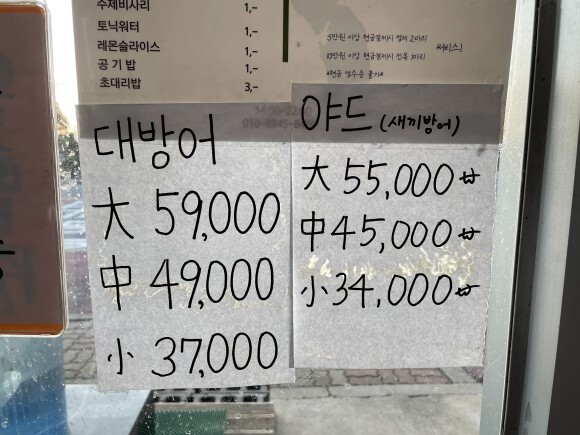 수제비사리 1,-
토닉워터 1,-
레몬슬라이스 1,-
공기밥 1,-
초대리밥 3,-
5만원 이상 현금결제시 멍게 2마리
10만원 이상 현금결제시 전복 1마리
써비스!
*현금 영수증 불가*
대방어
大 59,000
中 49,000
小 37,000
야드 (새끼방어)
大 55,000₩
中 45,000₩
小 34,000₩